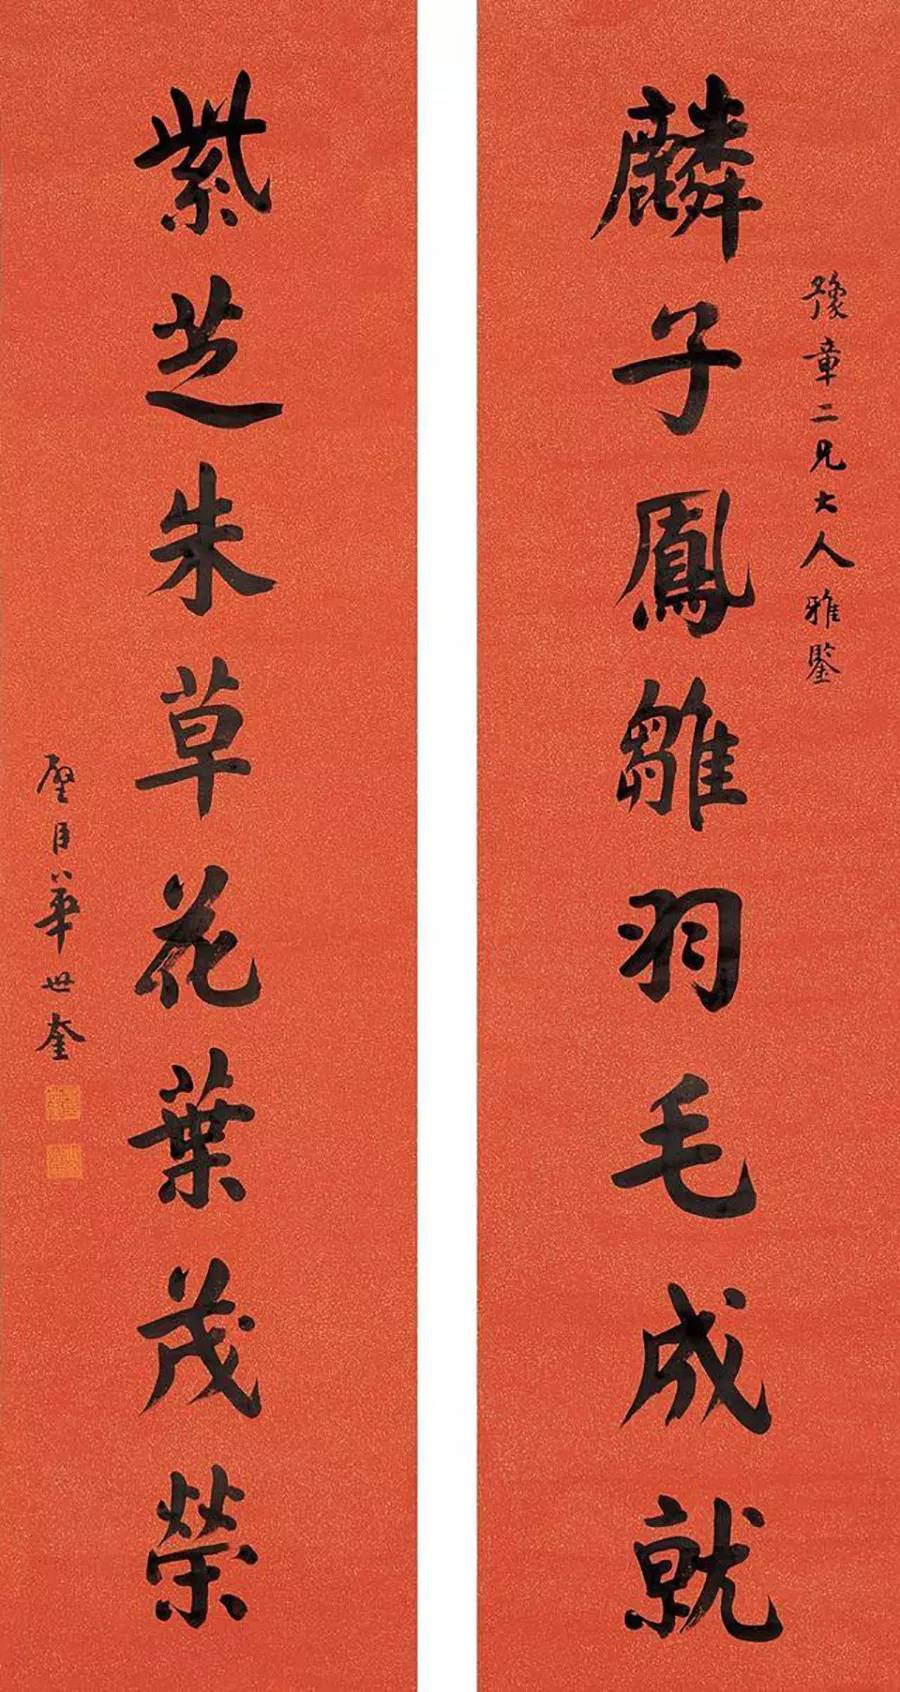 豫章二兄大人雅鑒
麟子鳳雛羽毛成就
紫芝朱草花葉茂榮
璧臣華世奎